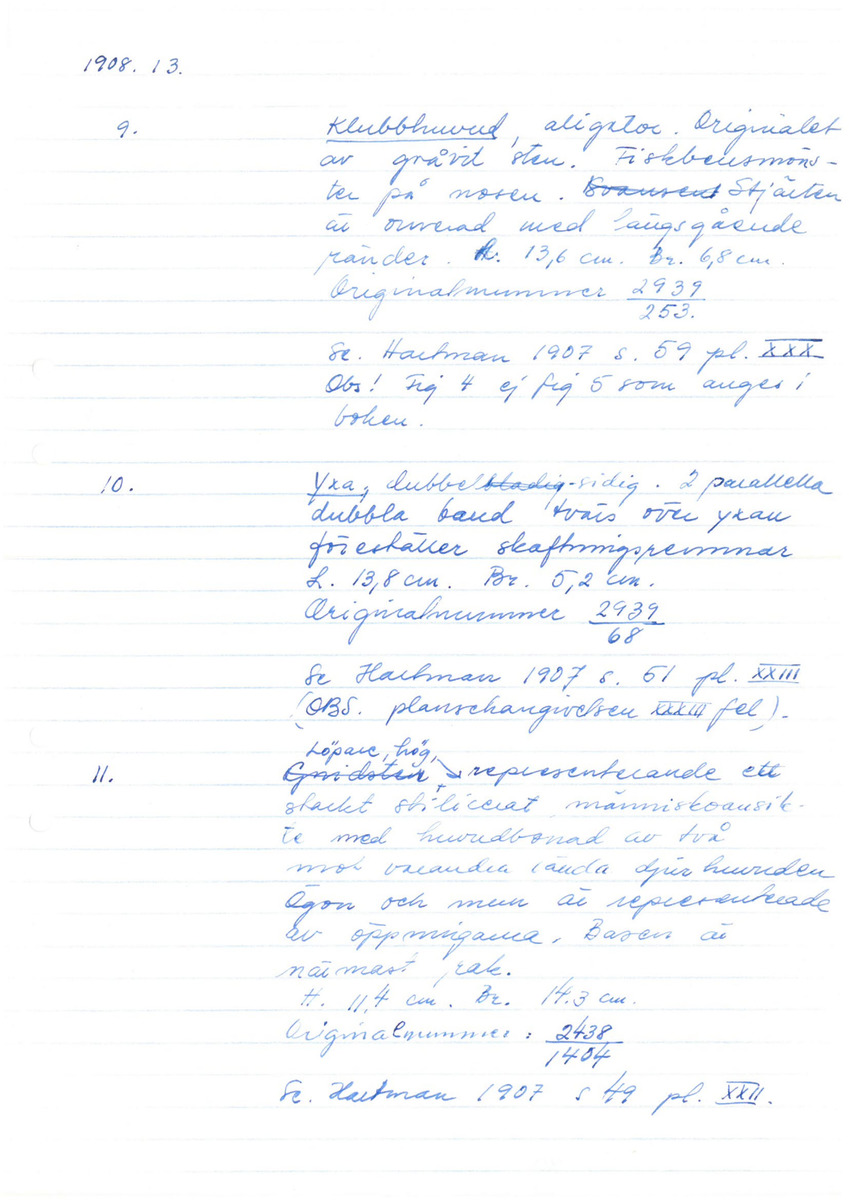 1908. 13.
9. Klubbhuvud, aligator. Originalet
av gråvit sten. Fiskbensmöns-
ter på nosen. Svansen Stjärten
är ornerad med längsgående
ränder. L. 13,6 cm. Br. 6,8 cm.
Originalnummer 2939
253.
Se. Hartman 1907 s. 59 pl. XXX
Obs! Fig 4 ej fig 5 som anges i
boken.
10. Yxa, dubbelbladig-sidig. 2 parallella
dubbla band tvärs över yxan
föreställer skaftningsremmar
L. 13,8 cm. Br. 5,2 cm.
Originalnummer 2939
68
Se Hartman 1907 s. 51 pl. XXIII
(OBS. planschangivelsen XXXIII fel).
Löpare, hög,
11. Gnidsten representerande ett
starkt stiliserat människoansik-
te med huvudbonad av två
mot varandra vända djurhuvuden
Ögon och mun är representerade
av öppningarna. Basen är
närmast rak.
H. 11,4 cm. Br. 14.3 cm.
Originalnummer: 2438
1404
Se. Hartman 1907 s 49 pl. XXII.